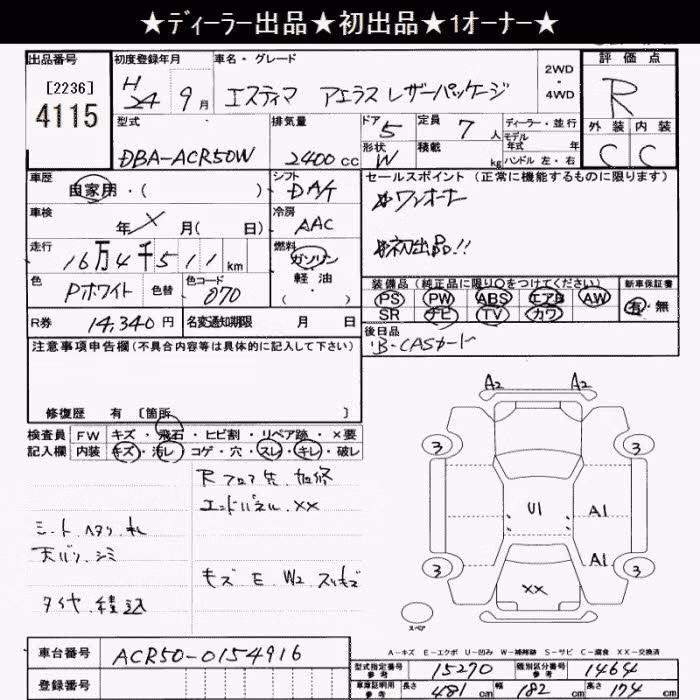 ★ディーラー出品★初出品★1オーナー★
出品番号
[2236]
4115
初度登録年月
H24 9月
車名・グレード
エスティマ アエラス レザーパッケージ
2WD
・
4WD
評価点
R
外装 内装
C C
型式
DBA-ACR50W
排気量
2400cc
ドア 5
形状 W
定員 7人
積載 kg
ディーラー・並行
モデル年式 年
ハンドル 左・右
車歴
自家用・( )
シフト
DA/T
セールスポイント(正常に機能するものに限ります)
☆ワンオーナー
☆初出品!!
車検
年 X 月( 日)
冷房
AAC
走行
16万4千511km
燃料
ガソリン
軽油
( ・ )
色
Pホワイト
色替
色コード
070
装備品(純正品に限り○をつけてください)
PS PW ABS エアB AW
SR ナビ TV カワ
新車保証書
有・無
R券
14,340円
名変通知期限 月 日
後日品
B-CASカード
注意事項申告欄(不具合内容等は具体的に記入して下さい)
修復歴 有 [箇所 ]
検査員
記入欄
FW キズ・飛石・ヒビ割・リペア跡・×要
内装 キズ・汚レ・コゲ・穴・スレ・キレ・破レ
Rフロア先 加修
エンドパネル XX
シート ヘタリ
天バリ シミ
キズ E W2 スリキズ
タイヤ 積込
A2 A2
3 3
U1 A1
A1
3 3
XX
スペア
A-キズ E-エクボ U-凹み W-補修跡 S-サビ C-腐食 XX-交換済
車台番号
ACR50-0154916
登録番号
型式指定番号
参考
15270
類別区分番号
参考
1464
車庫証明用
参考
長さ 481cm 幅 182cm 高さ 174cm